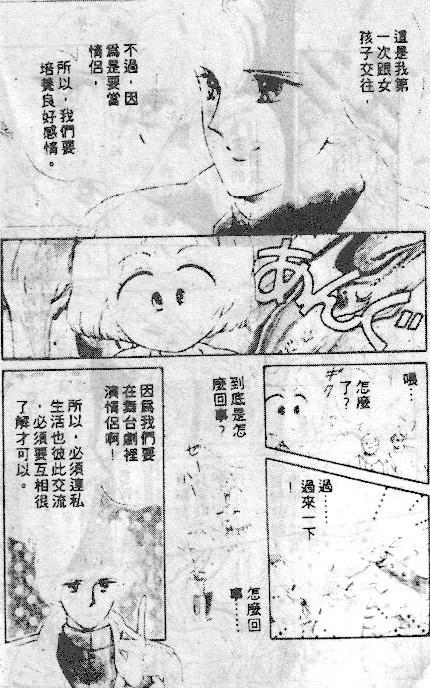 這是我第
一次跟女
孩子交往，
不過，因
為是要當
情侶，
所以，我們要
培養良好感情。
あんぐ
喂…
怎麼
了？
ギク
過……
過來一下
！
到底是怎
麼回事？
ぜーハー
怎麼回
事……
因為我們要
在舞台劇裡
演情侶啊！
所以，必須連私
生活也彼此交流
，必須要互相很
了解才可以。